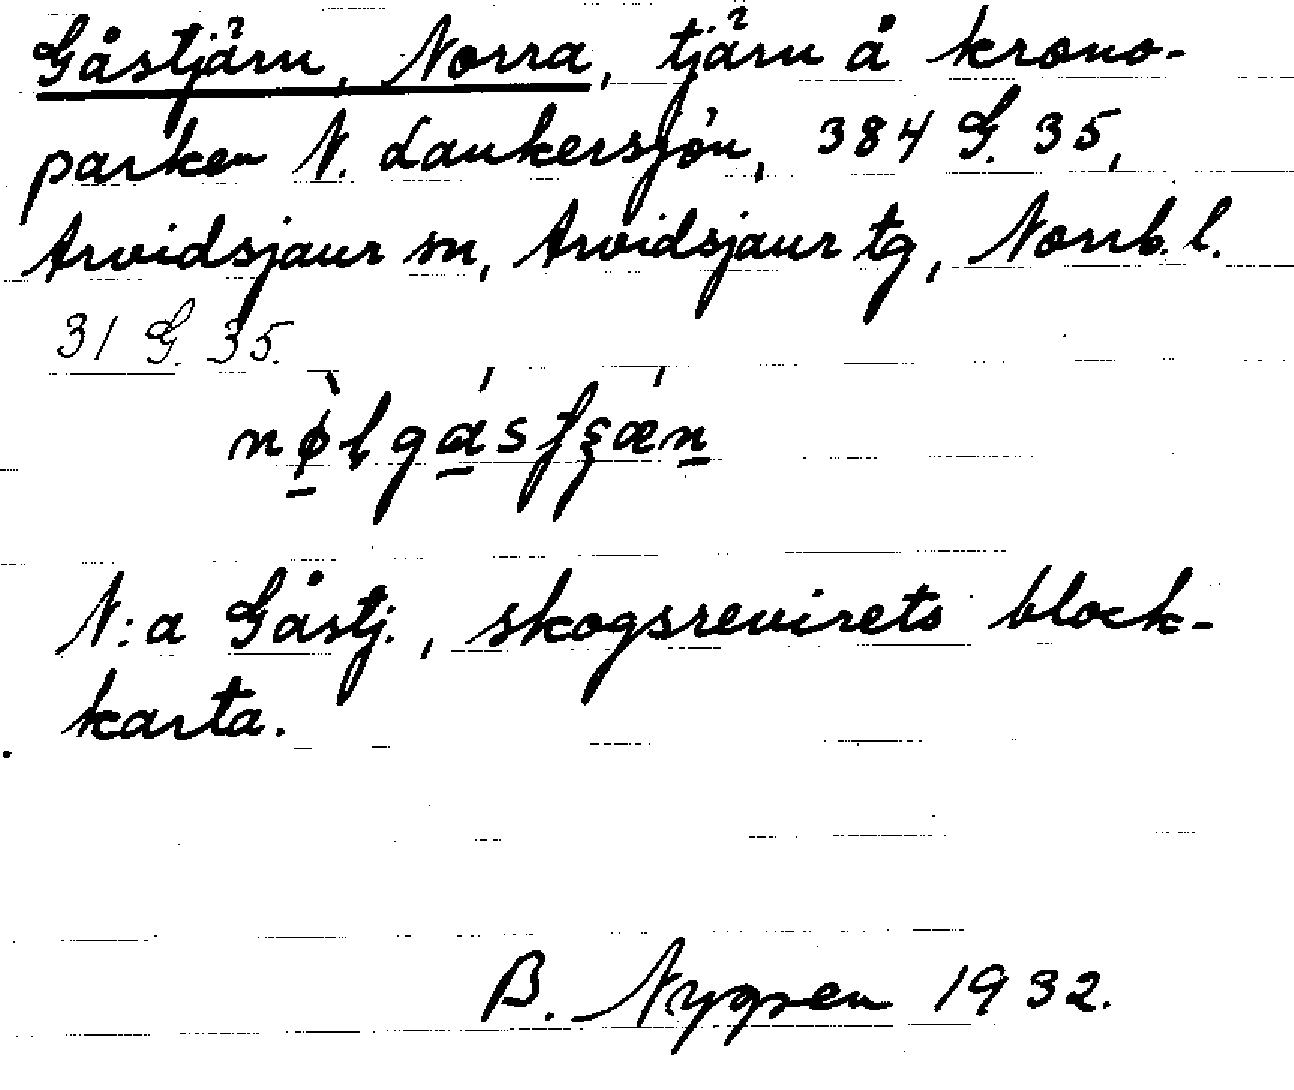 Gåstjärn, Norra, tjärn å krono-
parken N. Laukersjön, 384 G. 35,
Arvidsjaur sn, Arvidsjaur tg, Norrb. l.
31 G. 35.
N:a Gåstj., skogsrevirets block-
karta.
B. Nygren 1932.